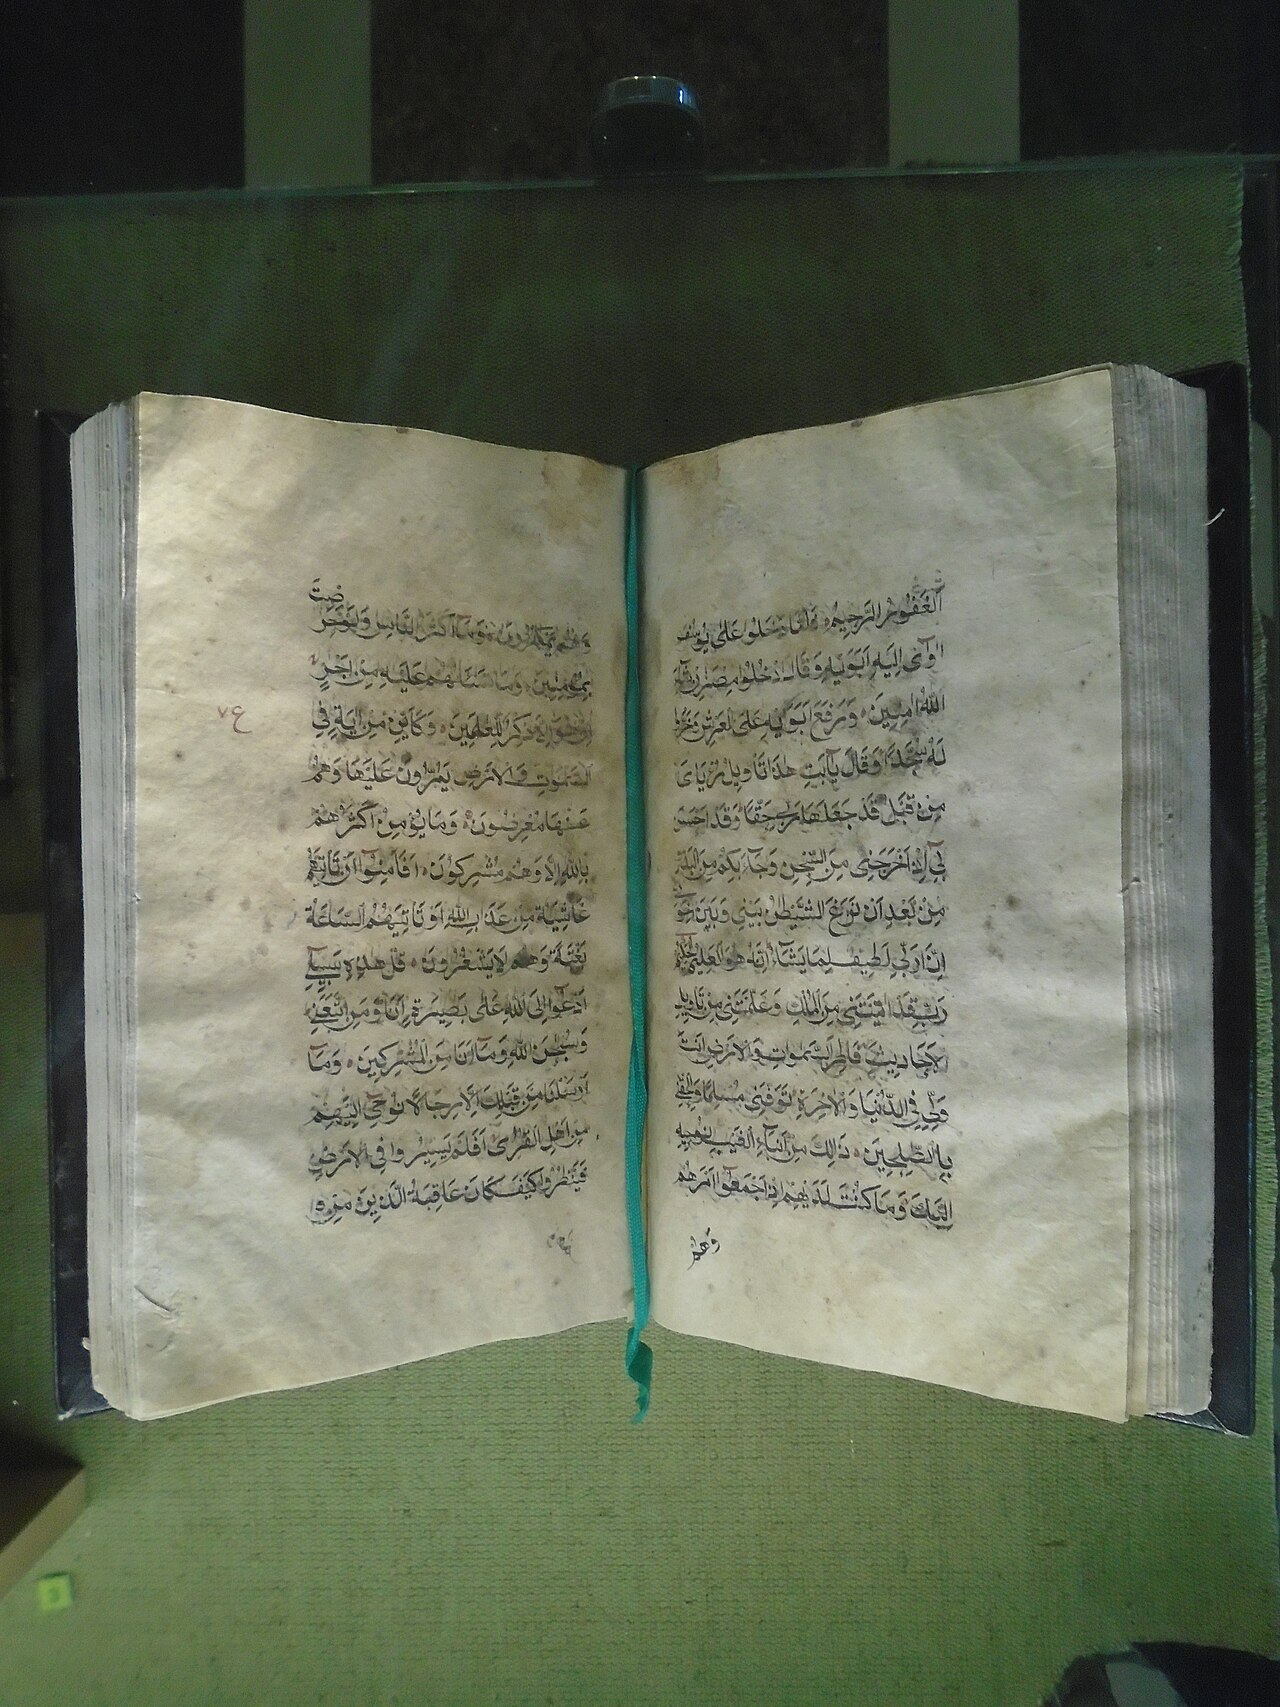 الْغَفُورُ الرَّحِيمُ فَلَمَّا دَخَلُوا عَلَى يُوسُفَ
اٰوٰى اِلَيْهِ اَبَوَيْهِ وَقَالَ ادْخُلُوا مِصْرَ اِنْ شَآءَ
اللّٰهُ اٰمِنِينَ وَرَفَعَ اَبَوَيْهِ عَلَى الْعَرْشِ وَخَرُّوا
لَهُ سُجَّدًا وَقَالَ يَآ اَبَتِ هٰذَا تَاْوِيلُ رُءْيَاىَ
مِنْ قَبْلُ قَدْ جَعَلَهَا رَبِّى حَقًّا وَقَدْ اَحْسَنَ
بِى اِذْ اَخْرَجَنِى مِنَ السِّجْنِ وَجَآءَ بِكُمْ مِنَ الْبَدْوِ
مِنْ بَعْدِ اَنْ نَزَغَ الشَّيْطٰنُ بَيْنِى وَبَيْنَ اِخْوَتِى
اِنَّ رَبِّى لَطِيفٌ لِمَا يَشَآءُ اِنَّهُ هُوَ الْعَلِيمُ الْحَكِيمُ
رَبِّ قَدْ اٰتَيْتَنِى مِنَ الْمُلْكِ وَعَلَّمْتَنِى مِنْ تَاْوِيلِ
الْاَحَادِيثِ فَاطِرَ السَّمٰوٰتِ وَالْاَرْضِ اَنْتَ
وَلِىِّ فِى الدُّنْيَا وَالْاٰخِرَةِ تَوَفَّنِى مُسْلِمًا وَاَلْحِقْنِى
بِالصّٰلِحِينَ ذٰلِكَ مِنْ اَنْبَآءِ الْغَيْبِ نُوحِيهِ
اِلَيْكَ وَمَا كُنْتَ لَدَيْهِمْ اِذْ اَجْمَعُوا اَمْرَهُمْ
وَهُمْ
وَهُمْ يَمْكُرُونَ وَمَا اَكْثَرُ النَّاسِ وَلَوْ حَرَصْتَ
بِمُؤْمِنِينَ وَمَا تَسْئَلُهُمْ عَلَيْهِ مِنْ اَجْرٍ
اِنْ هُوَ اِلَّا ذِكْرٌ لِلْعٰلَمِينَ وَكَاَيِّنْ مِنْ اٰيَةٍ فِى
السَّمٰوٰتِ وَالْاَرْضِ يَمُرُّونَ عَلَيْهَا وَهُمْ
عَنْهَا مُعْرِضُونَ وَمَا يُؤْمِنُ اَكْثَرُهُمْ
بِاللّٰهِ اِلَّا وَهُمْ مُشْرِكُونَ اَفَاَمِنُوا اَنْ تَاْتِيَهُمْ
غَاشِيَةٌ مِنْ عَذَابِ اللّٰهِ اَوْ تَاْتِيَهُمُ السَّاعَةُ
بَغْتَةً وَهُمْ لَا يَشْعُرُونَ قُلْ هٰذِهِ سَبِيلِى
اَدْعُوا اِلَى اللّٰهِ عَلٰى بَصِيرَةٍ اَنَا وَمَنِ اتَّبَعَنِى
وَسُبْحٰنَ اللّٰهِ وَمَا اَنَا مِنَ الْمُشْرِكِينَ وَمَا
اَرْسَلْنَا مِنْ قَبْلِكَ اِلَّا رِجَالًا نُوحِى اِلَيْهِمْ
مِنْ اَهْلِ الْقُرٰى اَفَلَمْ يَسِيرُوا فِى الْاَرْضِ
فَيَنْظُرُوا كَيْفَ كَانَ عَاقِبَةُ الَّذِينَ مِنْ